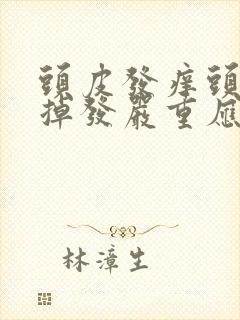 頭皮發痒頭
掉發嚴重應
林漳生